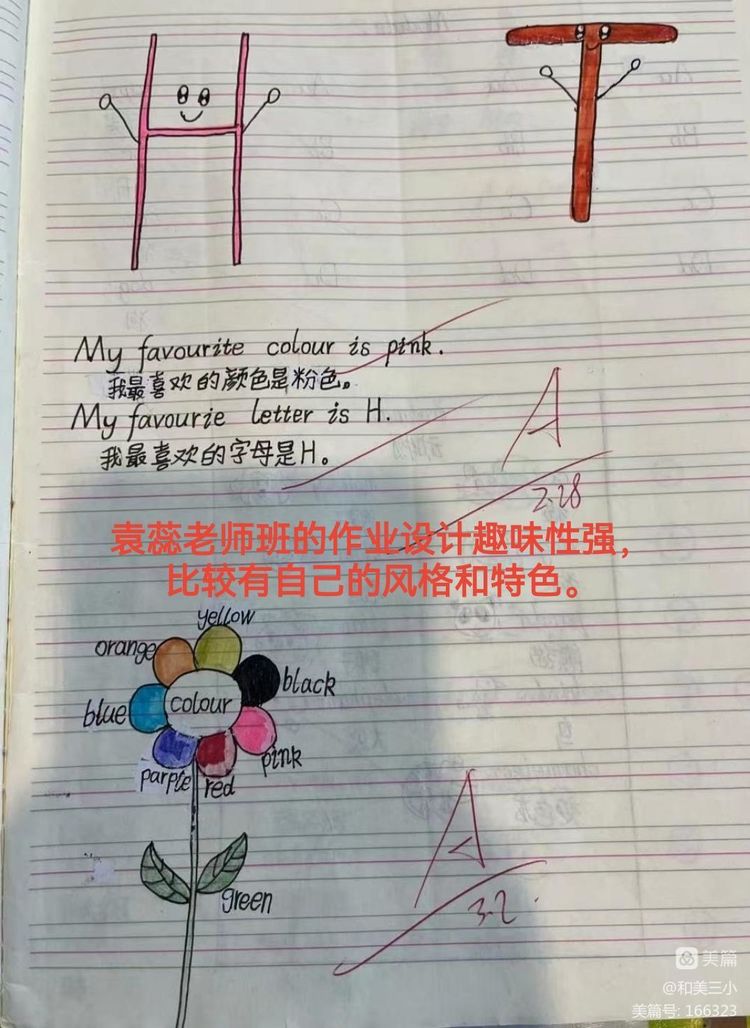 My favourite colour is pink.
我最喜欢的颜色是粉色。
My favourie letter is H.
我最喜欢的字母是H。
A
2.28
袁蕊老师班的作业设计趣味性强，
比较有自己的风格和特色。
yellow
orange
black
blue
colour
pink
parple
red
green
A
3.2.
美篇
@和美三小
美篇号: 166323